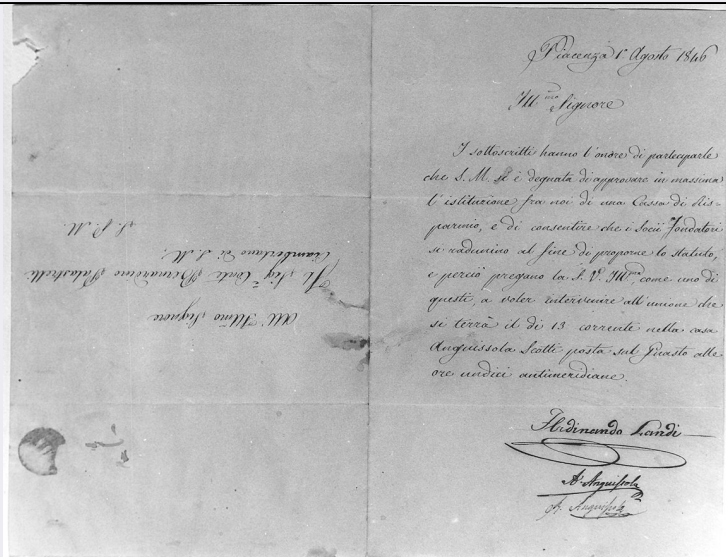 Piacenza 1° Agosto 1846
Ill.mo Signore
I sottoscritti hanno l'onore di parteciparle
che S. M. si è degnata di approvare in massima
l'istituzione fra noi di una Cassa di Ris-
parmio, e di consentire che i Socii fondatori
si radunino al fine di proporne lo statuto,
e perciò pregano la S. V. Ill.ma, come uno di
questi, a voler intervenire all'unione che
si terrà il dì 13 corrente nella casa
Anguissola Scotti posta sul Guasto alle
ore undici antimeridiane.
Ferdinando Landi
A. Anguissola
Anguissola
All' Illmo Signore
Il Sig. Conte Bernardino Palastrelli
Ciamberlano di S. M.
S. P. M.